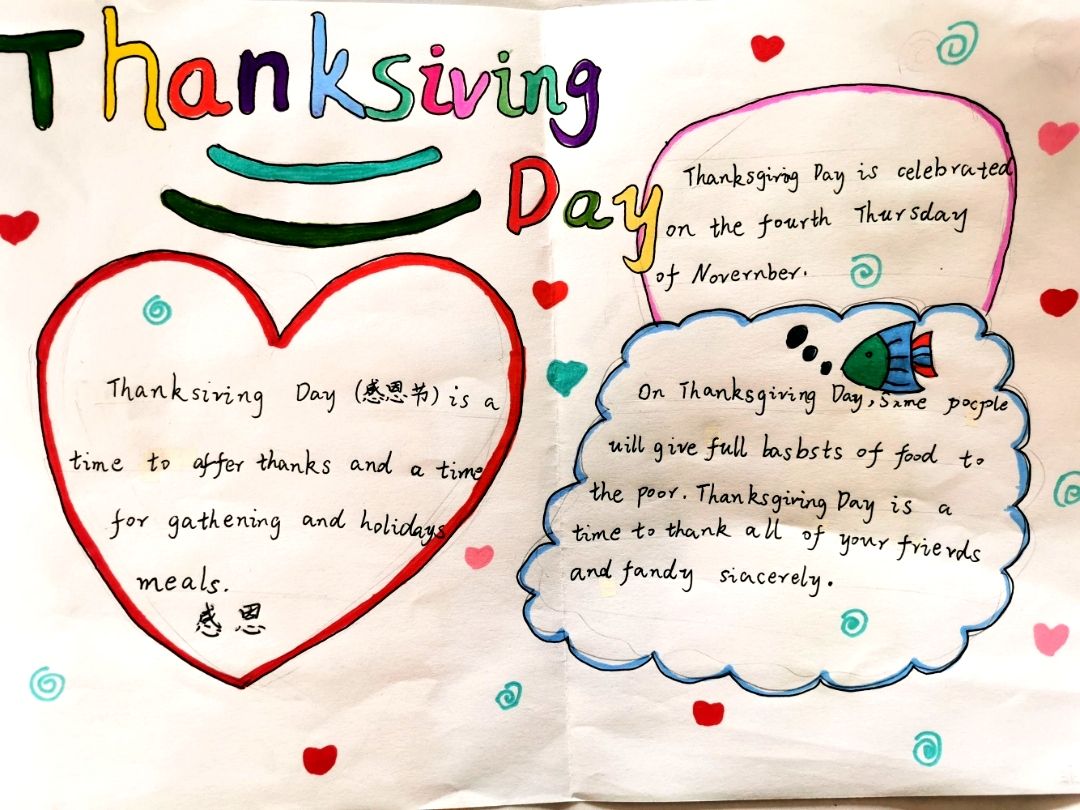 Thanksiving
Day
Thanksgiring Day is celebrated
on the fourth Thursday
of Novernber.
Thanksiring Day (感恩节) is a
time to affer thanks and a time
for gathening and holidays
meals.
感恩
On Thanksgiring Day, Some pocple
uill give full basbsts of food to
the poor. Thanksgiring Day is a
time to thank all of your frievds
and fandy siacerely.